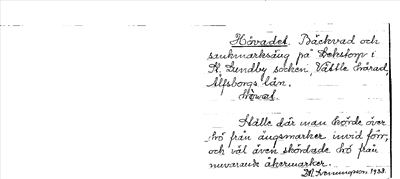 Hövadet. Bäckvad och
sankmarksäng på Lekstorp i
St. Lundby socken, Vättle härad,
Älfsborgs län.
Ställe där man körde över
hö från ängsmarker invid förr,
och väl även skördade hö från
nuvarande åkermarker.
1933.